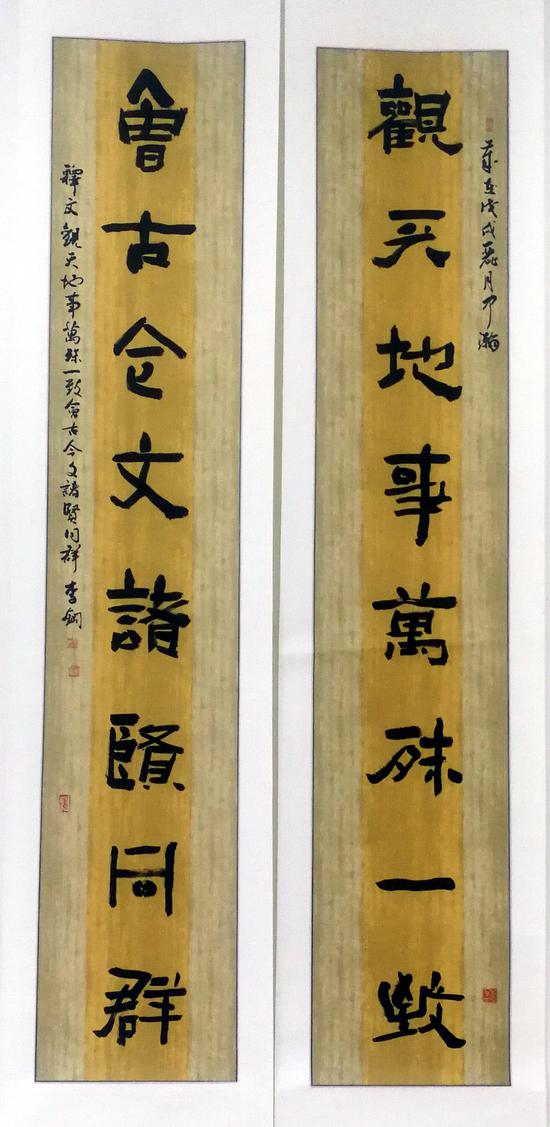 歲在戊戌月中瀚
觀天地事萬殊一致
會古今文諸賢同群
釋文觀天地事萬殊一致會古今文諸賢同群李鋼